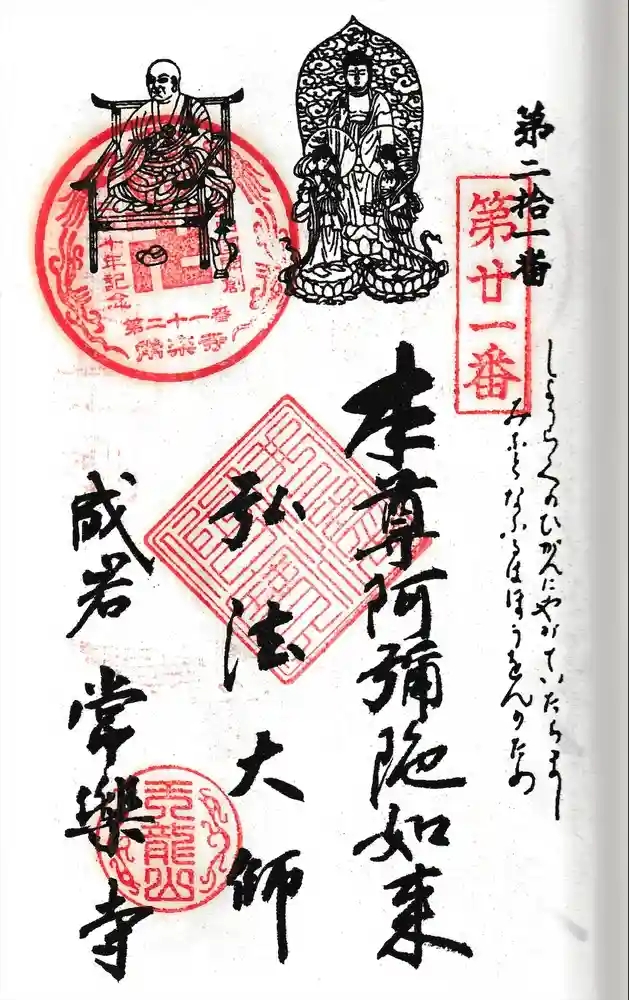 第二拾一番
しようらくのひがんにやがていたらまし
となふるはほうをんのため
第廿一番
本尊阿彌陀如来
弘法大師
成岩 常樂寺
開創
十年記念
第二十一番
常楽寺
天龍山